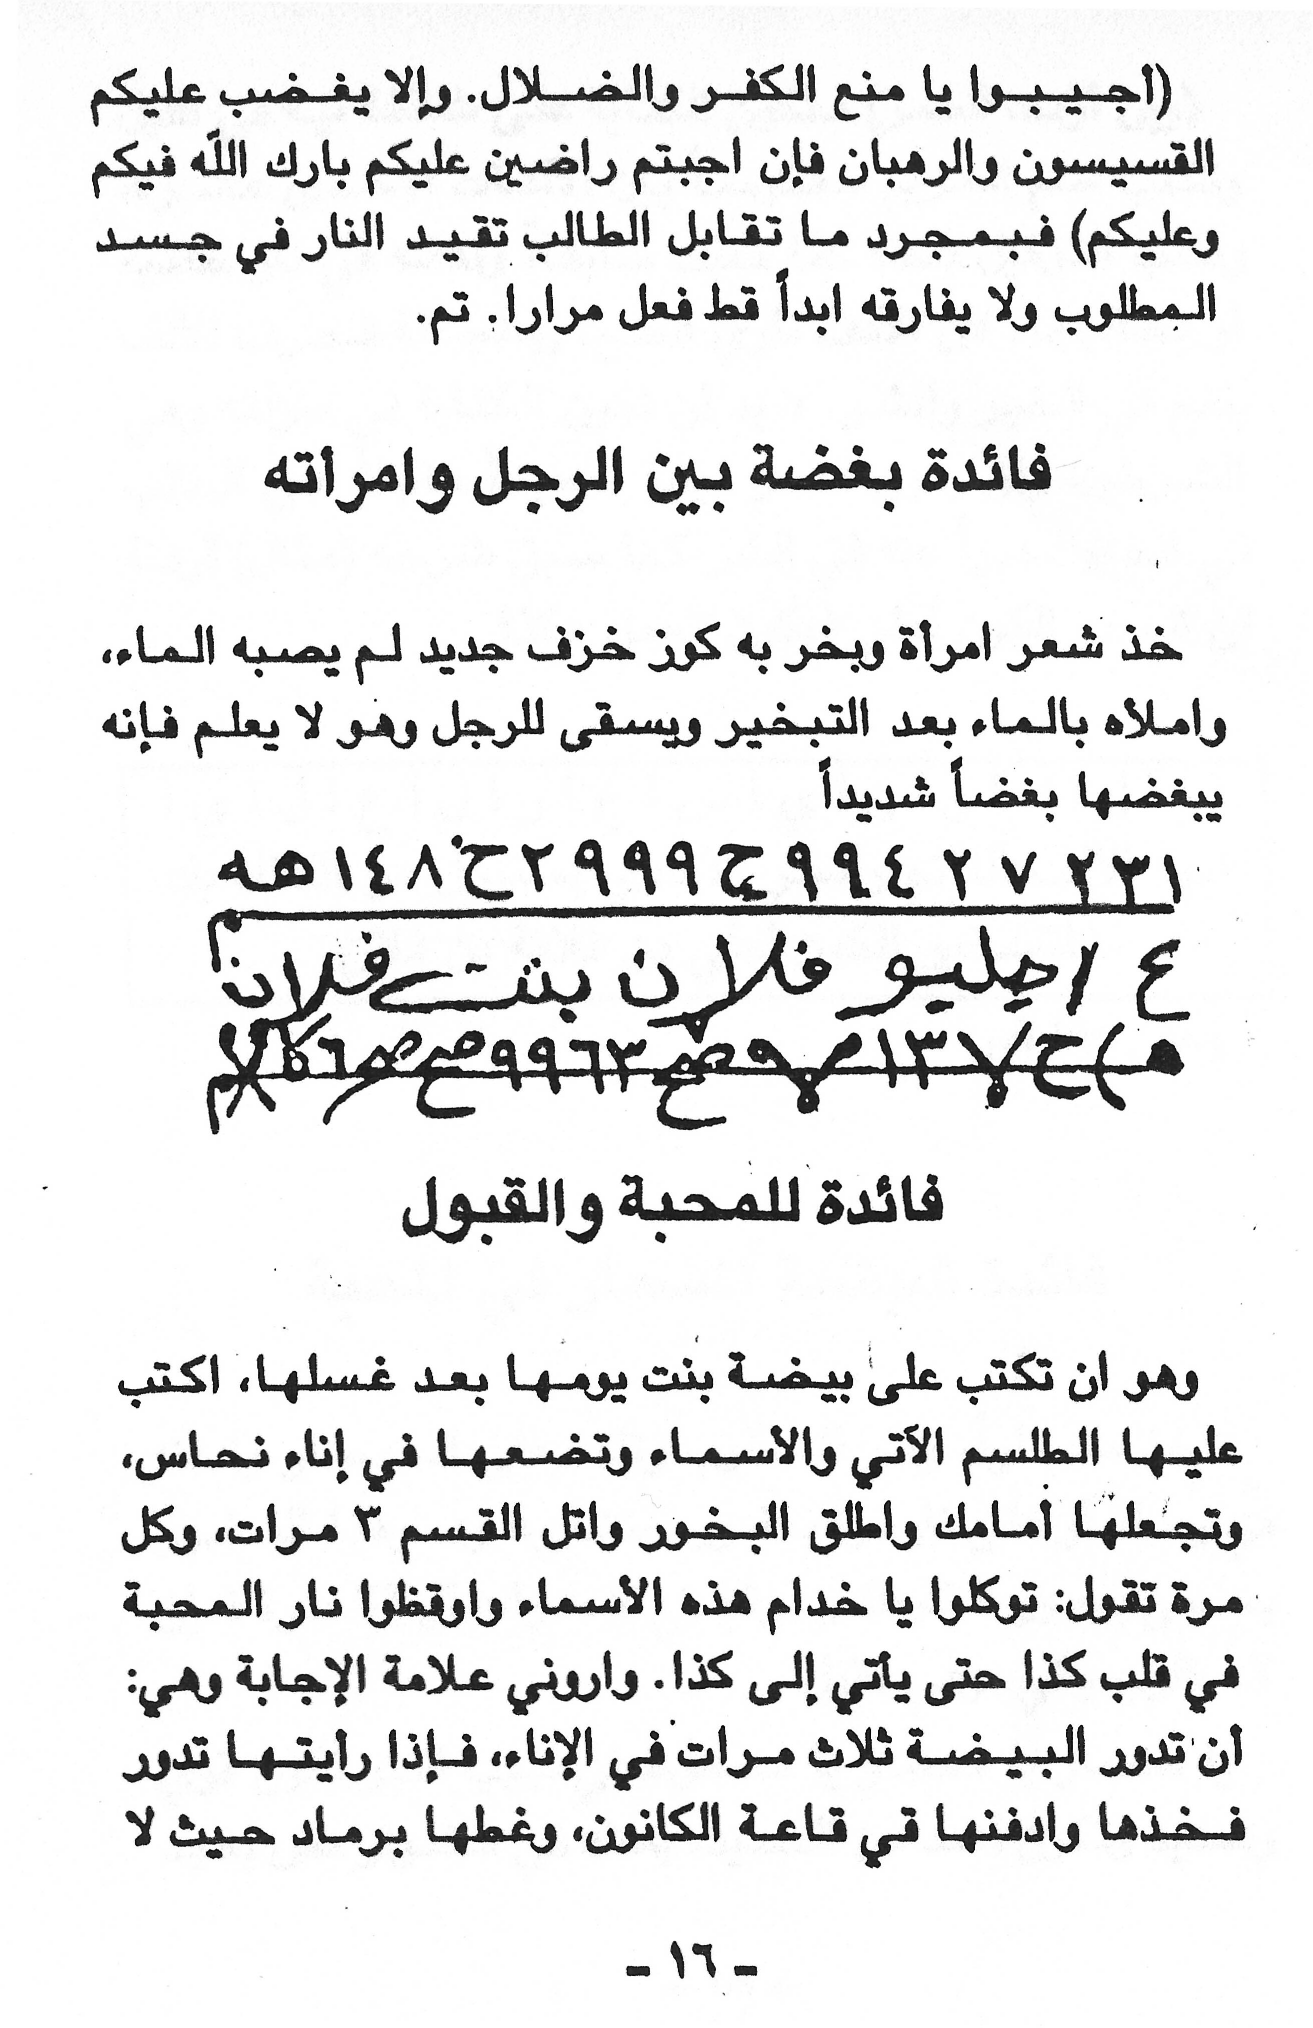 (أجيبوا يا منع الكفر والضلال. وإلا يغضب عليكم
القسيسون والرهبان فإن اجبتم راضين عليكم بارك اللّه فيكم
وعليكم) فبمجرد ما تقابل الطالب تقيد النار في جسد
المطلوب ولا يفارقه ابداً قط فعل مرارا. تم.
فائدة بغضة بين الرجل وامرأته
خذ شعر امرأة وبخر به كوز خزف جديد لم يصبه الماء،
واملأه بالماء بعد التبخير ويسقى للرجل وهو لا يعلم فإنه
يبغضها بغضاً شديداً
فلان بنت فلان
فائدة للمحبة والقبول
وهو ان تكتب على بيضة بنت يومها بعد غسلها، اكتب
عليها الطلسم الآتي والأسماء وتضعها في إناء نحاس،
وتجعلها أمامك واطلق البخور واتل القسم ٣ مرات، وكل
مرة تقول: توكلوا يا خدام هذه الأسماء واوقظوا نار المحبة
في قلب كذا حتى يأتي إلى كذا. واروني علامة الإجابة وهي:
أن تدور البيضة ثلاث مرات في الإناء، فإذا رأيتها تدور
فخذها وادفنها قي قاعة الكانون، وغطها برماد حيث لا
- ١٦ -